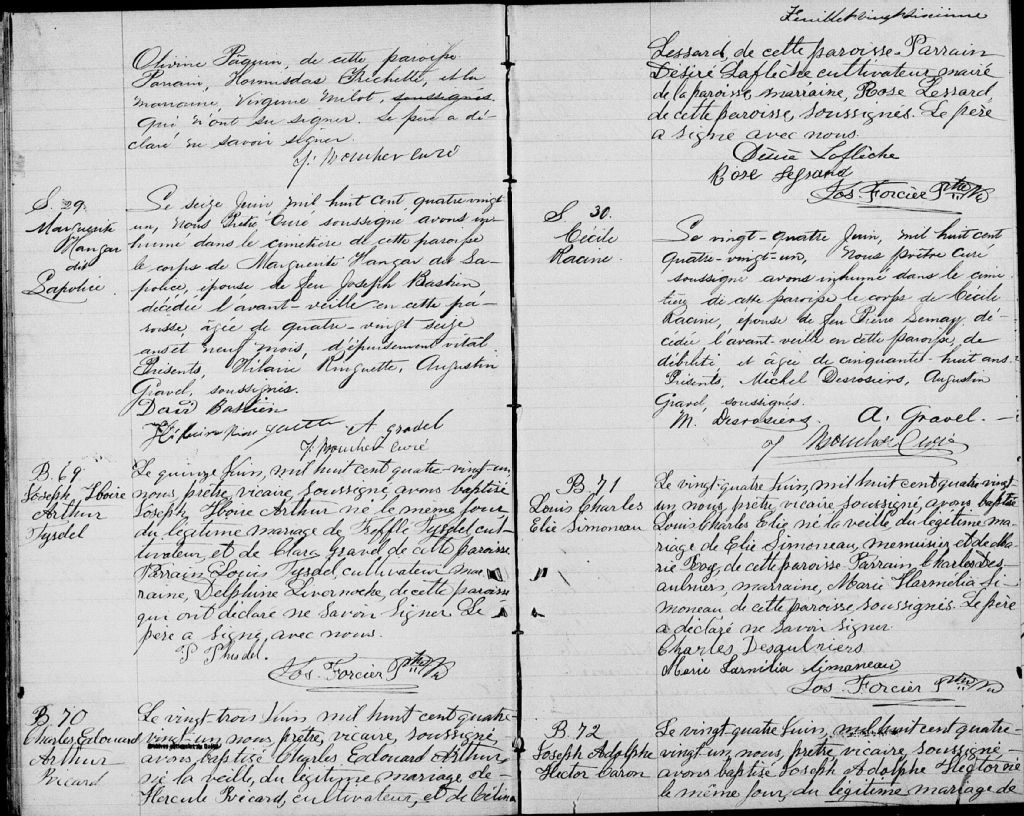 Olivine Paquin, de cette paroisse
Parrain, Hormisdas Frechette, et la
marraine, Virginie Milot, soussignés
qui n'ont su signer. Le père a dé-
claré ne savoir signer.
J. Boucher curé
S. 29.
Marguerite
Vangar
dit
Lapolice
Le seize Juin, mil huit cent quatre vingt
un, nous Prêtre Curé soussigné avons in-
humé dans le cimetière de cette paroisse
le corps de Marguerite Vangar dit La-
police, épouse de feu Joseph Bastien
décédée l'avant-veille en cette pa-
roisse âgée de quatre-vingt seize
ans et neuf mois, d'épuisement vital
Présents, Hilaire Ringuette, Augustin
Gravel, soussignés.
David Bastien
Hilaire Ringuette A gravel
J. Boucher curé
B. 69
Joseph
Arthur
Tysdel
Le quinze Juin, mil huit cent quatre-vingt-un,
nous, prêtre, vicaire, soussigné, avons baptisé
Joseph Arthur né le même jour
du légitime mariage de Tysdel cul-
tivateur, et de Clara Grand de cette paroisse
Parrain Louis Tysdel, cultivateur, mar-
raine, Delphine Livernoche, de cette paroisse
qui ont déclaré ne savoir signer Le
père a signé, avec nous.
Jos. Forcier Ptre V
B. 70
Charles Edouard
Arthur
Ricard
Le vingt-trois Juin mil huit cent quatre
vingt-un nous, prêtre, vicaire, soussigné
avons baptisé Charles Edouard Arthur,
né la veille, du légitime mariage de
Hercule Ricard, cultivateur, et de Célina
Feuillet vingt sixième
Lessard, de cette paroisse. Parrain
Désiré Laflèche cultivateur, maire
de la paroisse, marraine, Rose Lessard,
de cette paroisse, soussignés. Le père
a signé avec nous.
Désiré Laflèche
Rose Legrand
Jos. Forcier Ptre V
S. 30.
Cécile
Racine
Le vingt-quatre Juin, mil huit cent
quatre-vingt-un, nous prêtre curé
soussigné avons inhumé dans le cime
tière de cette paroisse le corps de Cécile
Racine, épouse de feu Pierre Lemay, dé-
cédée l'avant veille en cette paroisse, de
débilité et âgée de cinquante-huit ans.
Présents, Michel Desrosiers, Augustin
Gravel, soussignés.
M. Desrosiers A. Gravel.
J Boucher Curé
B. 71
Louis Charles
Elie Simoneau
Le vingt-quatre Juin, mil huit cent quatre vingt
un nous, prêtre, vicaire, soussigné, avons baptisé
Louis Charles Elie né la veille du légitime ma-
riage de Elie Simoneau, menuisier et de Ma-
rie Roy, de cette paroisse. Parrain, Charles Des-
aulniers, marraine, Marie Harmelia Si-
moneau de cette paroisse, soussignés. Le père
a déclaré ne savoir signer
Charles Desaulniers
Marie Larmélia simaneau
Jos. Forcier Ptre V
B. 72
Joseph Adolphe
Hector Caron
Le vingt-quatre Juin, mil huit cent quatre-
vingt-un, nous, prêtre, vicaire, soussigné
avons baptisé Joseph Adolphe Hector né
le même jour, du légitime mariage de